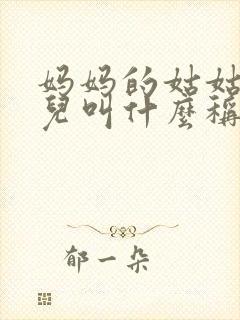 妈妈的姑姑
兒叫什麼稱
郁一朵